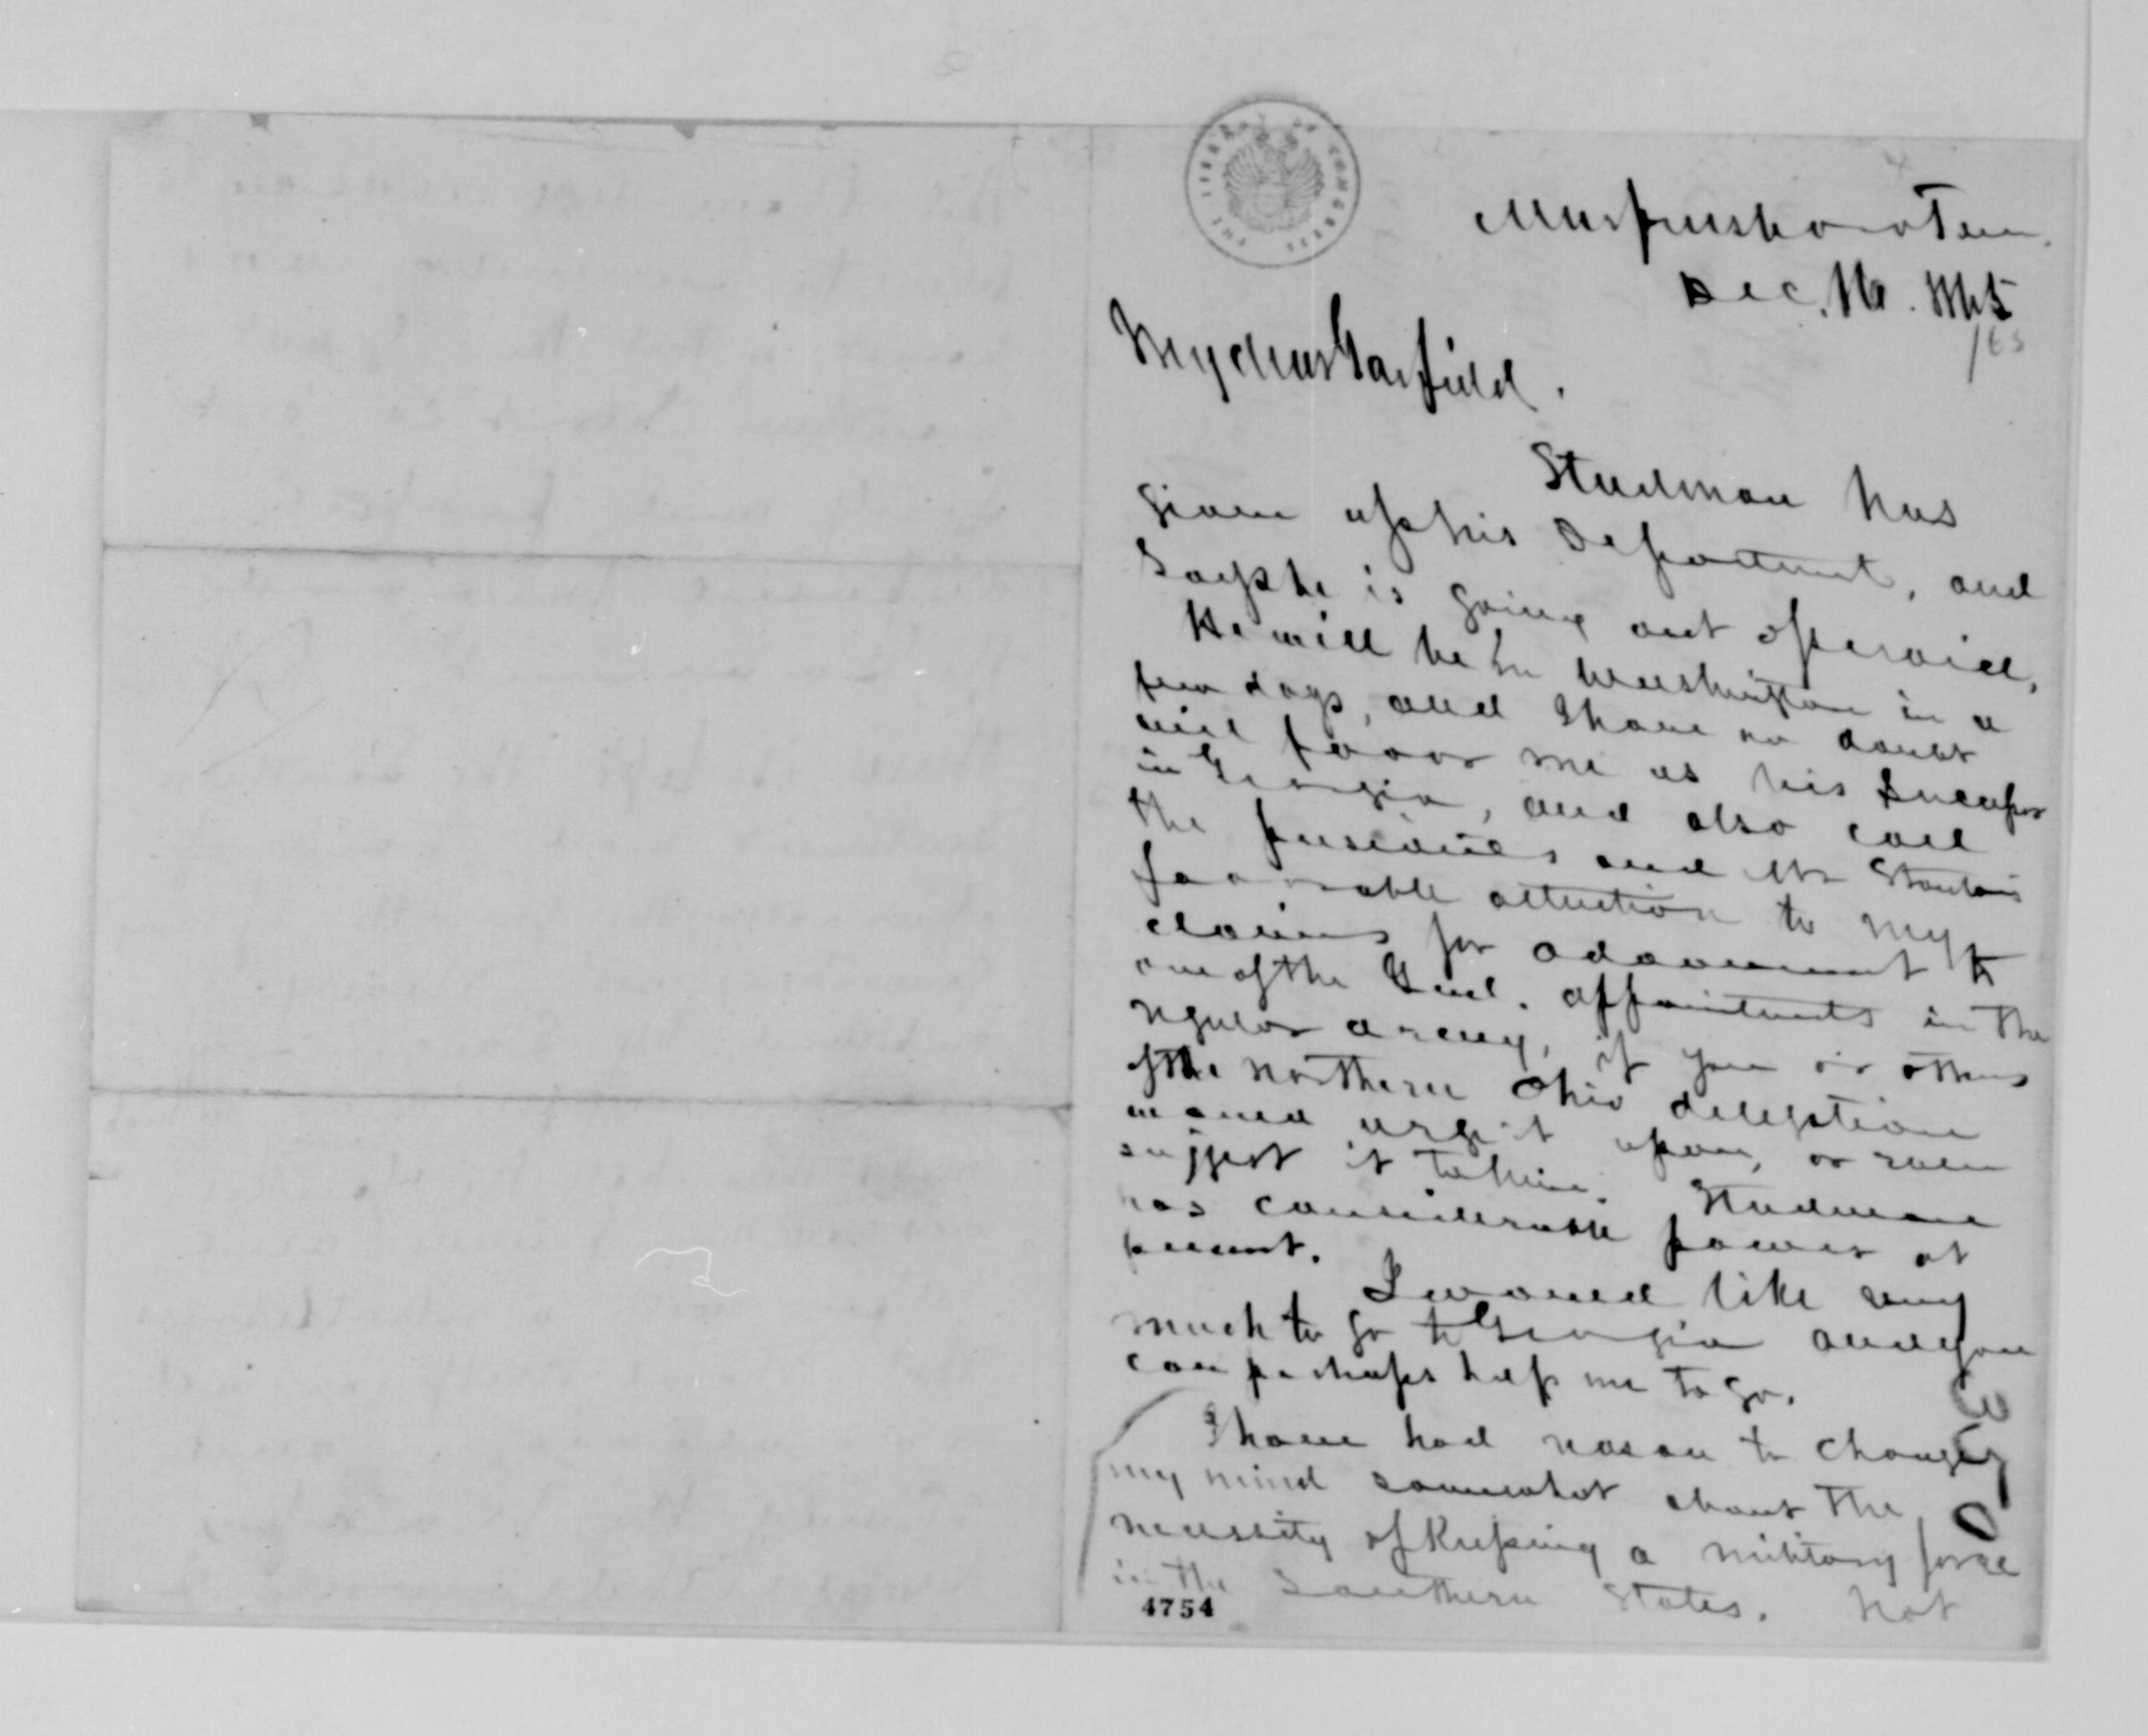 THE LIBRARY OF CONGRESS
Murfreesboro Tenn.
Dec. 16. 1865
/65
My dear Garfield.
Steedman has
given up his Department, and
says he is going out of service,
He will be in Washington in a
few days, and I have no doubt
will favor me as his Successor
in Georgia, and also call
the presidents and Mr Stantons
favorable attention to my
claims for advancement to
one of the Genl. appointments in the
regular army, if you or others
of the northern Ohio delegation
would urge it upon, or even
suggest it to him. Steedman
has considerable power at
present.
I would like very
much to go to Georgia and you
can perhaps help me to go.
I have had reason to change
my mind somewhat about the
necessity of keeping a military force
in the Southern States. Not
4754